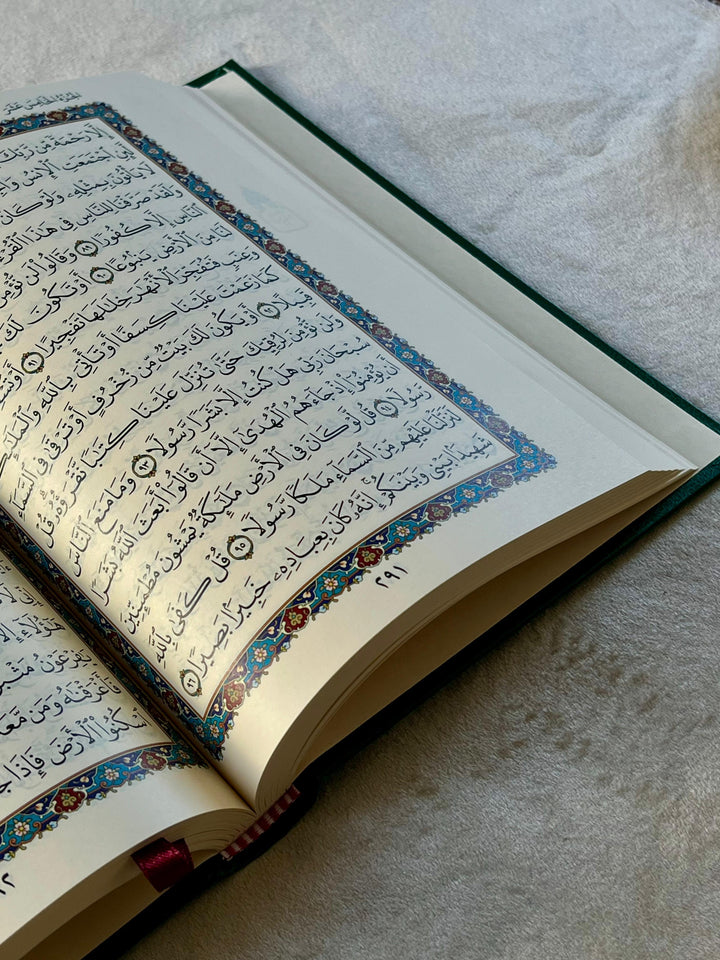 الجزء الخامس عشر
إِلَّا رَحْمَةً مِّن رَّبِّكَ
ٱجْتَمَعَتِ ٱلْإِنسُ
لَا يَأْتُونَ بِمِثْلِهِۦ وَلَوْ كَانَ
وَلَقَدْ صَرَّفْنَا لِلنَّاسِ فِى هَٰذَا ٱلْقُرْءَانِ
ٱلنَّاسِ إِلَّا كُفُورًا ٨٩ وَقَالُوا۟ لَن نُّؤْمِنَ
لَنَا مِنَ ٱلْأَرْضِ يَنۢبُوعًا ٩٠ أَوْ تَكُونَ لَكَ
وَعِنَبٍ فَتُفَجِّرَ ٱلْأَنْهَٰرَ خِلَٰلَهَا تَفْجِيرًا ٩١ أَوْ
كَمَا زَعَمْتَ عَلَيْنَا كِسَفًا أَوْ تَأْتِىَ بِٱللَّهِ وَٱلْمَلَٰٓئِكَةِ
قَبِيلًا ٩٢ أَوْ يَكُونَ لَكَ بَيْتٌ مِّن زُخْرُفٍ أَوْ تَرْقَىٰ فِى ٱلسَّمَآءِ
وَلَن نُّؤْمِنَ لِرُقِيِّكَ حَتَّىٰ تُنَزِّلَ عَلَيْنَا كِتَٰبًا نَّقْرَؤُهُۥ قُلْ
سُبْحَانَ رَبِّى هَلْ كُنتُ إِلَّا بَشَرًا رَّسُولًا ٩٣ وَمَا مَنَعَ ٱلنَّاسَ
أَن يُؤْمِنُوٓا۟ إِذْ جَآءَهُمُ ٱلْهُدَىٰٓ إِلَّآ أَن قَالُوٓا۟ أَبَعَثَ ٱللَّهُ بَشَرًا
رَّسُولًا ٩٤ قُل لَّوْ كَانَ فِى ٱلْأَرْضِ مَلَٰٓئِكَةٌ يَمْشُونَ مُطْمَئِنِّينَ
لَنَزَّلْنَا عَلَيْهِم مِّنَ ٱلسَّمَآءِ مَلَكًا رَّسُولًا ٩٥ قُلْ كَفَىٰ بِٱللَّهِ
شَهِيدًۢا بَيْنِى وَبَيْنَكُمْ إِنَّهُۥ كَانَ بِعِبَادِهِۦ خَبِيرًۢا بَصِيرًا ٩٦
٢٩١
هَٰٓؤُلَآءِ إِلَّا
يَٰفِرْعَوْنُ
فَأَغْرَقْنَٰهُ وَمَن مَّعَهُۥ
ٱسْكُنُوا۟ ٱلْأَرْضَ فَإِذَا